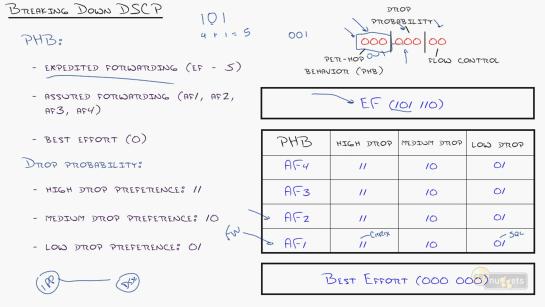 BREAKING DOWN DSCP
101
4 + 1 = 5
001
DROP
PROBABILITY
000 000 00
001
PER-HOP
BEHAVIOR (PHB)
FLOW CONTROL
PHB:
- EXPEDITED FORWARDING (EF - 5)
- ASSURED FORWARDING (AF1, AF2,
AF3, AF4)
- BEST EFFORT (0)
DROP PROBABILITY:
- HIGH DROP PREFERENCE: 11
- MEDIUM DROP PREFERENCE: 10
- LOW DROP PREFERENCE: 01
EF (101 110)
PHB HIGH DROP MEDIUM DROP LOW DROP
AF4 11 10 01
AF3 11 10 01
AF2 11 10 01
AF1 11 10 01
Citrix
SQL
BEST EFFORT (000 000)
nuggets